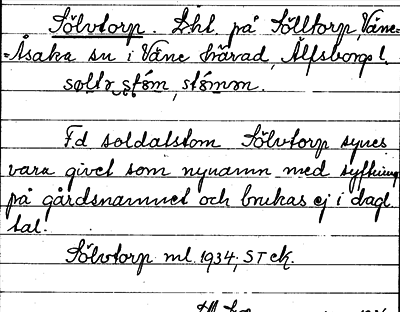 Sölvtorp. Lht. på Sölltorp, Väne-
=Åsaka sn i Väne härad, Älfsborgs l.
F.d soldatstom Sölvtorp synes
vara givet som nynamn med syftning
på gårdsnamnet och brukas ej i dagl.
tal.
Sölvtorp ml. 1934, ST ck.